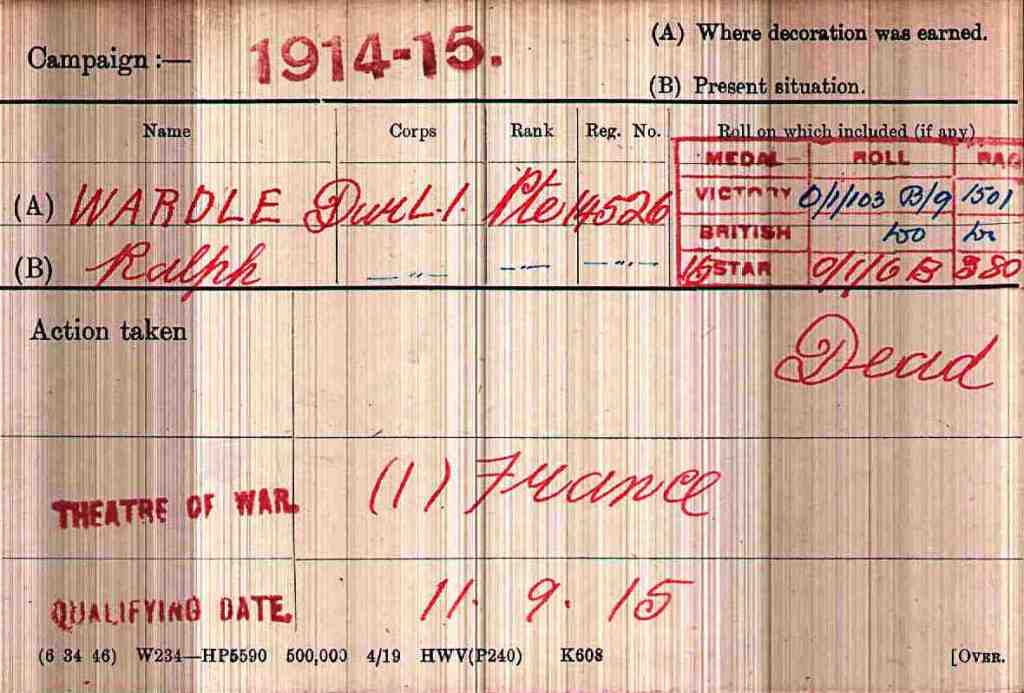 Campaign :— 1914-15.
(A) Where decoration was earned.
(B) Present situation.
Name Corps Rank Reg. No. Roll on which included (if any)
MEDAL ROLL PAG
(A) WARDLE Dur L.I. Pte 14526 VICTORY O/1/103 B/9 1501
BRITISH do do
(B) Ralph —„— —„— —„— 15 STAR O/1/6 B 380
Action taken
Dead
THEATRE OF WAR. (1) France
QUALIFYING DATE. 11. 9. 15
(6 34 46) W234—HP5590 500,000 4/19 HWV(P240) K608 [OVER.